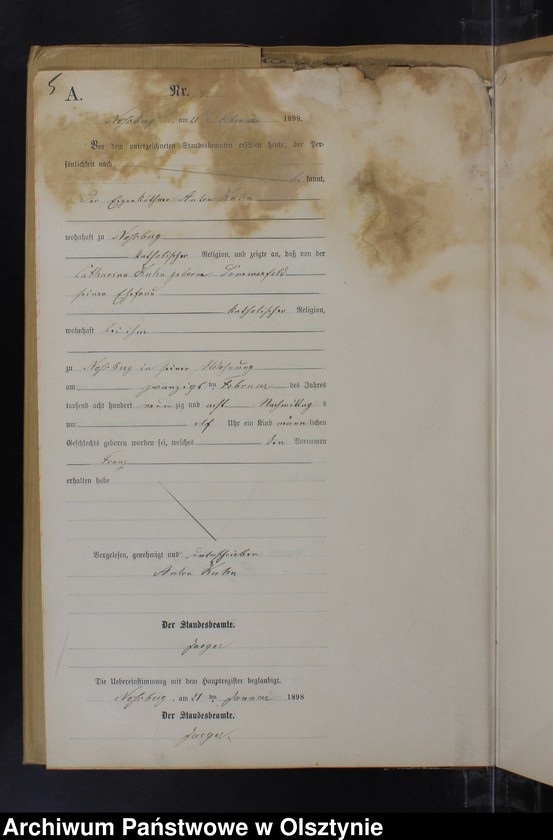 5
A.
Nr.
Nossberg, am 21 Februar 1898.
Vor dem unterzeichneten Standesbeamten erschien heute, der Per-
sönlichkeit nach
be kannt,
der Eigenkäthner Anton Kuhn
wohnhaft zu Nossberg
katholischer Religion, und zeigte an, daß von der
Catharina Kuhn geborene Sommerfeld
seiner Ehefrau
katholischer Religion,
wohnhaft bei ihm
zu Nossberg in seiner Wohnung
am zwanzigsten Februar des Jahres
tausend acht hundert neun zig und acht Nachmittag s
um elf Uhr ein Kind männ lichen
Geschlechts geboren worden sei, welches den Vornamen
Franz
erhalten habe
Vorgelesen, genehmigt und unterschrieben
Anton Kuhn
Der Standesbeamte.
Jaeger
Die Uebereinstimmung mit dem Hauptregister beglaubigt.
Nossberg, am ten Januar 1898
Der Standesbeamte.
Jaeger.
Archiwum Państwowe w Olsztynie